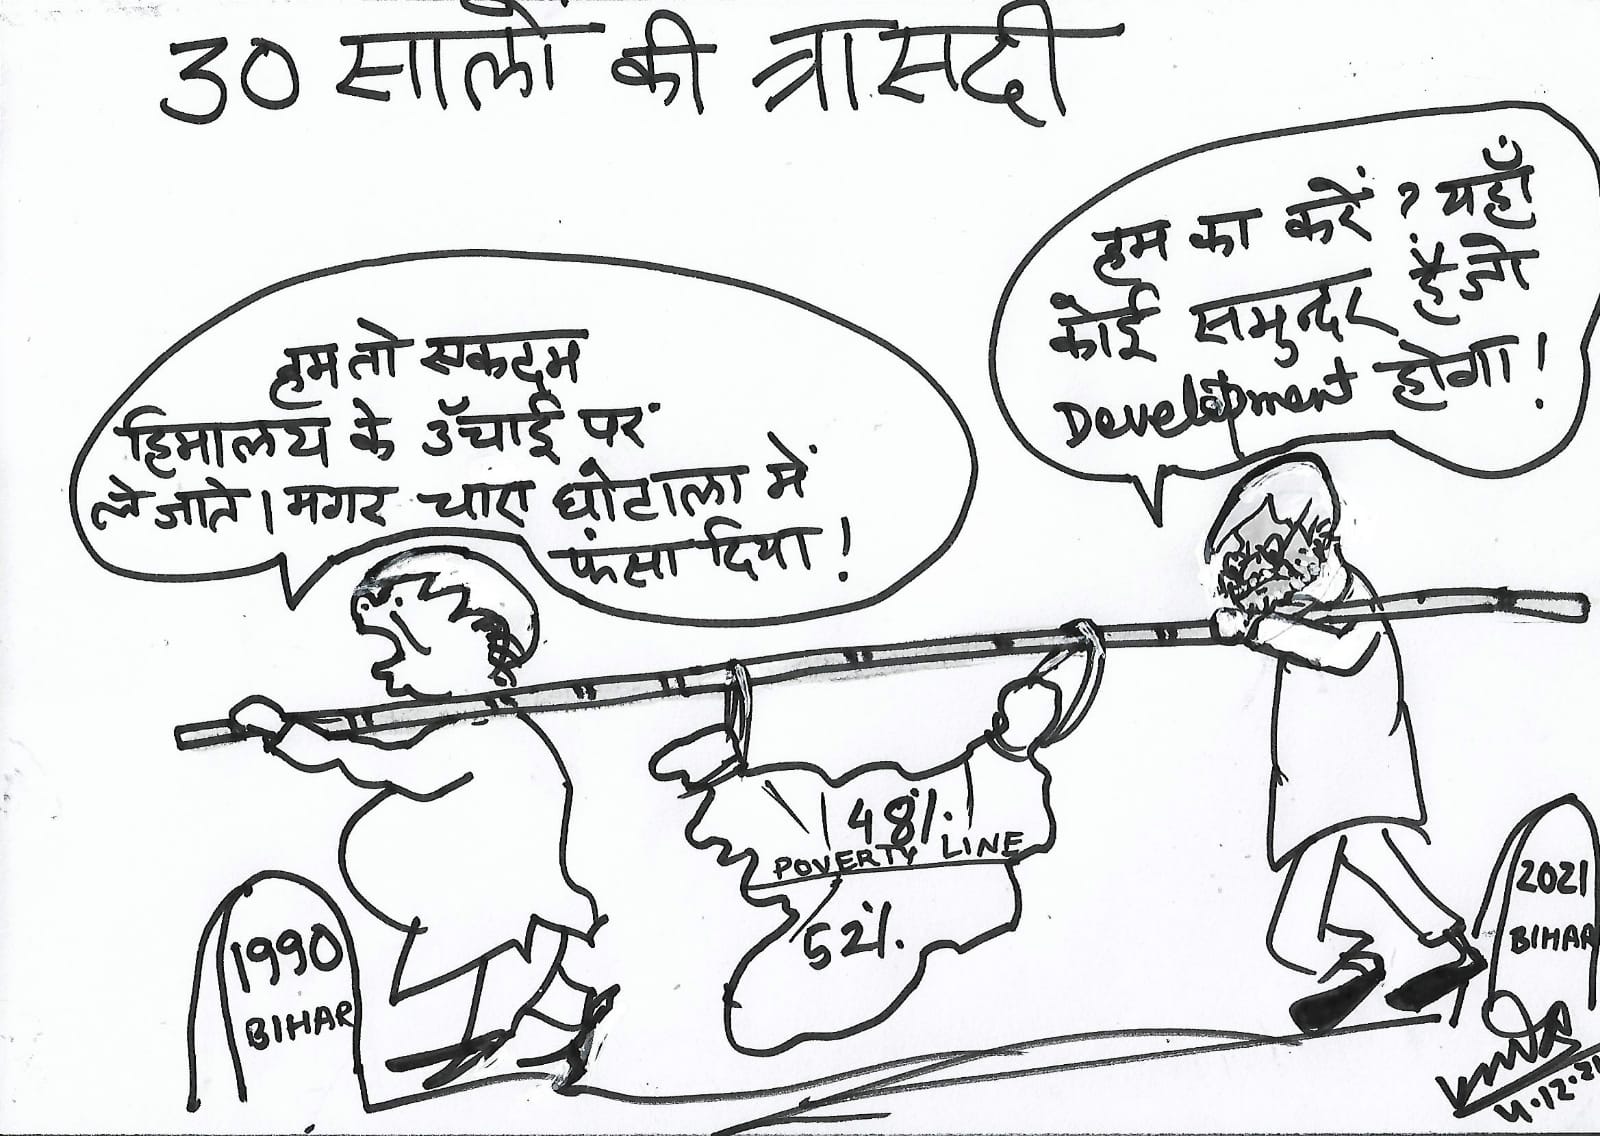 30 सालों की त्रासदी
हम का करें ? यहाँ
कोई समुन्दर है जो
Development होगा !
हम तो एकदम
हिमालय के ऊँचाई पर
ले जाते । मगर चारा घोटाला में
फंसा दिया !
48%
POVERTY LINE
52%
1990
BIHAR
2021
BIHAR